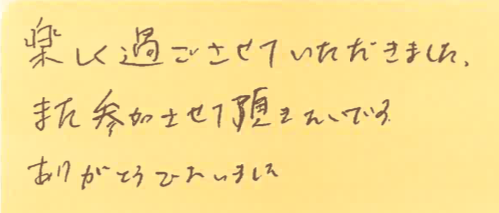 楽しく過ごさせていただきました。
また参加させて頂きたいです
ありがとうございました